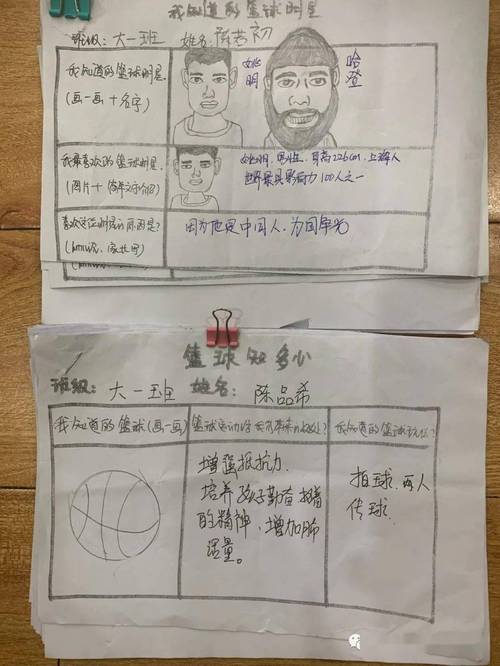 我知道的篮球明星
班级：大一班 姓名：陈若初
我知道的篮球明星
(画一画＋名字)
姚明
哈登
我最喜欢的篮球明星
(图片＋简单文字介绍)
姚明，男性，身高226cm，上海人
世界最具影响力100人之一
喜欢这位明星的原因是？
因为他是中国人，为国争光
篮球知多少
班级：大一班 姓名：陈品希
我知道的篮球(画一画)
增强抵抗力，
培养孩子勤奋拼搏
的精神，增加肺
活量。
拍球，两人
传球